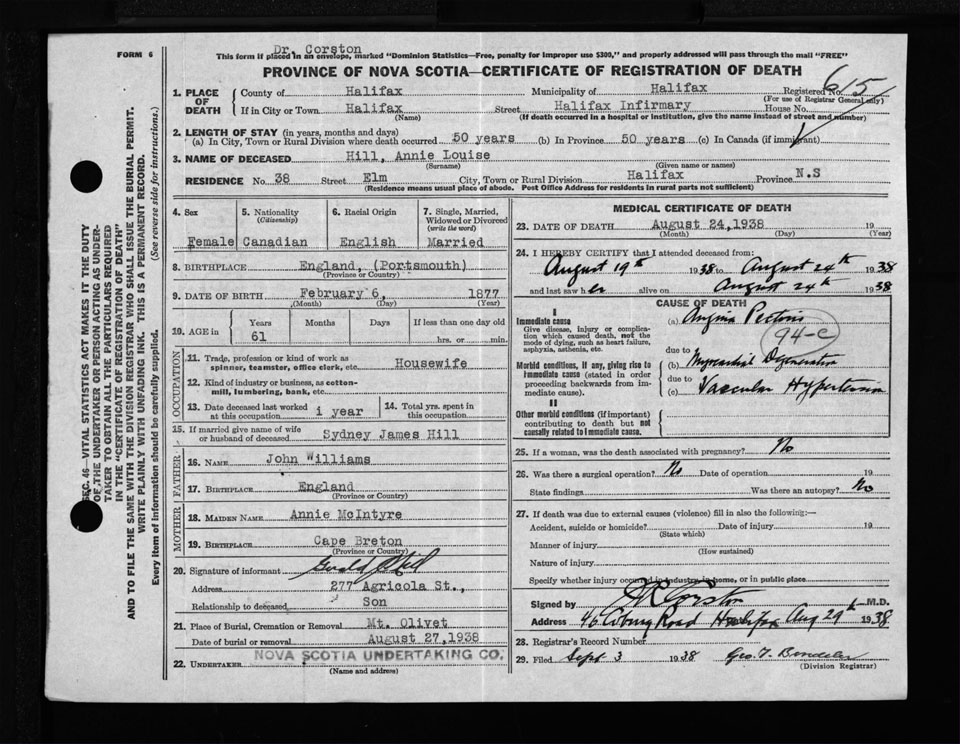 FORM 6
Dr. Corston
This form if placed in an envelope, marked "Dominion Statistics—Free, penalty for improper use $300," and properly addressed will pass through the mail "FREE"
PROVINCE OF NOVA SCOTIA—CERTIFICATE OF REGISTRATION OF DEATH
1. PLACE OF DEATH
County of Halifax Municipality of Halifax Registered No. 615
(For use of Registrar General only)
If in City or Town Halifax Street Halifax Infirmary House No.
(Name) (If death occurred in a hospital or institution, give the name instead of street and number)
2. LENGTH OF STAY (in years, months and days)
(a) In City, Town or Rural Division where death occurred 50 years (b) In Province 50 years (c) In Canada (if immigrant)
3. NAME OF DECEASED Hill, Annie Louise
(Surname) (Given name or names)
RESIDENCE No. 38 Street Elm City, Town or Rural Division Halifax Province N.S
(Residence means usual place of abode. Post Office Address for residents in rural parts not sufficient)
4. Sex Female
5. Nationality (Citizenship) Canadian
6. Racial Origin English
7. Single, Married, Widowed or Divorced (write the word) Married
8. BIRTHPLACE England, (Portsmouth)
(Province or Country)
9. DATE OF BIRTH February 6, 1877
(Month) (Day) (Year)
10. AGE in Years 61 Months Days If less than one day old hrs. or min.
OCCUPATION
11. Trade, profession or kind of work as spinner, teamster, office clerk, etc. Housewife
12. Kind of industry or business, as cotton-mill, lumbering, bank, etc.
13. Date deceased last worked at this occupation 1 year
14. Total yrs. spent in this occupation
15. If married give name of wife or husband of deceased Sydney James Hill
FATHER
16. NAME John Williams
17. BIRTHPLACE England
(Province or Country)
MOTHER
18. MAIDEN NAME Annie McIntyre
19. BIRTHPLACE Cape Breton
(Province or Country)
20. Signature of informant Hill
Address 277 Agricola St.,
Relationship to deceased Son
21. Place of Burial, Cremation or Removal Mt. Olivet
Date of burial or removal August 27, 1938
22. UNDERTAKER NOVA SCOTIA UNDERTAKING CO.
(Name and address)
MEDICAL CERTIFICATE OF DEATH
23. DATE OF DEATH August 24, 1938 19
(Month) (Day) (Year)
24. I HEREBY CERTIFY that I attended deceased from:
August 19th 1938 to August 24th 1938
and last saw her alive on August 24th 1938
CAUSE OF DEATH
I
Immediate cause
Give disease, injury or complication which caused death, not the mode of dying, such as heart failure, asphyxia, asthenia, etc.
(a) Angina Pectoris
94-c
due to
Morbid conditions, if any, giving rise to immediate cause (stated in order proceeding backwards from immediate cause).
(b) Myocardial Degeneration
due to
(c) Vascular Hypertension
II
Other morbid conditions (if important) contributing to death but not causally related to immediate cause.
25. If a woman, was the death associated with pregnancy? No
26. Was there a surgical operation? No Date of operation 19
State findings Was there an autopsy? No
27. If death was due to external causes (violence) fill in also the following:—
Accident, suicide or homicide? Date of injury 19
(State which)
Manner of injury
(How sustained)
Nature of injury
Specify whether injury occurred in industry, in home, or in public place
Signed by J R Corston M.D.
Address 46 Coburg Road Halifax Aug 29th 1938
28. Registrar's Record Number
29. Filed Sept 3 1938 Geo. T.
(Division Registrar)
SEC. 46—VITAL STATISTICS ACT MAKES IT THE DUTY
OF THE UNDERTAKER OR PERSON ACTING AS UNDER-
TAKER TO OBTAIN ALL THE PARTICULARS REQUIRED
IN THE "CERTIFICATE OF REGISTRATION OF DEATH"
AND TO FILE THE SAME WITH THE DIVISION REGISTRAR WHO SHALL ISSUE THE BURIAL PERMIT.
WRITE PLAINLY WITH UNFADING INK. THIS IS A PERMANENT RECORD.
Every item of information should be carefully supplied. (See reverse side for instructions.)